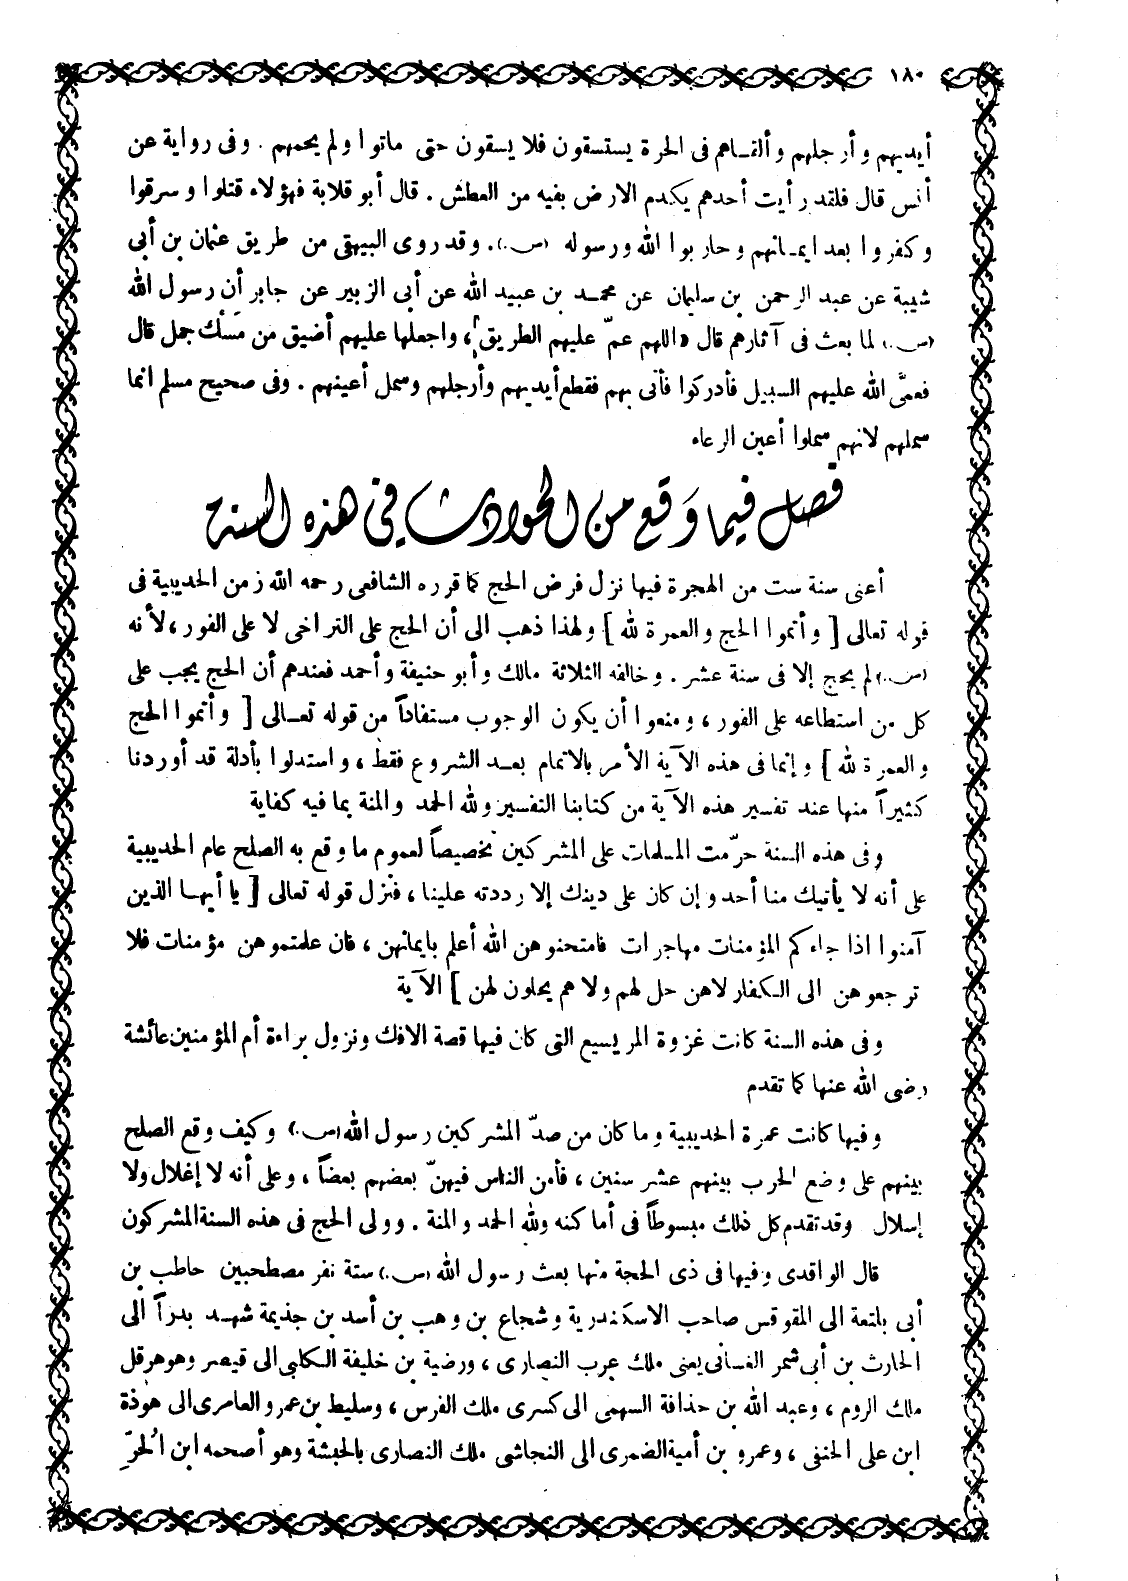 ١٨٠
أيديهم وأرجلهم وألقاهم فى الحرة يستسقون فلا يسقون حتى ماتوا ولم يحمهم . وفى رواية عن
أنس قال فلقد رأيت أحدهم يكدم الارض بفيه من العطش . قال أبو قلابة فهؤلاء قتلوا وسرقوا
وكفروا بعد ايمانهم وحاربوا الله ورسوله (س.) . وقد روى البيهقى من طريق عثمان بن أبى
شيبة عن عبد الرحمن بن سليمان عن محمد بن عبيد الله عن أبى الزبير عن جابر أن رسول الله
(س.) لما بعث فى آثارهم قال «اللهم عمّ عليهم الطريق ، واجعلها عليهم أضيق من مَسْك جمل قال
فعمَّى الله عليهم السبيل فأدركوا فأتى بهم فقطع أيديهم وأرجلهم وسمل أعينهم . وفى صحيح مسلم انما
سملهم لانهم سملوا أعين الرعاء
فصل فيما وَقع من الحوادث في هذه السنة
أعنى سنة ست من الهجرة فيها نزل فرض الحج كما قرره الشافعى رحمه الله زمن الحديبية فى
قوله تعالى [ وأتموا الحج والعمرة لله ] ولهذا ذهب الى أن الحج على التراخى لا على الفور ، لأنه
(س.) لم يحج إلا فى سنة عشر . وخالفه الثلاثة مالك وأبو حنيفة وأحمد فعندهم أن الحج يجب على
كل من استطاعه على الفور ، ومنعوا أن يكون الوجوب مستفاداً من قوله تعالى [ وأتموا الحج
والعمرة لله ] وإنما فى هذه الآية الأمر بالاتمام بعد الشروع فقط ، واستدلوا بأدلة قد أوردنا
كثيراً منها عند تفسير هذه الآية من كتابنا التفسير ولله الحمد والمنة بما فيه كفاية
وفى هذه السنة حرّمت المسلمات على المشركين تخصيصاً لعموم ما وقع به الصلح عام الحديبية
على أنه لا يأتيك منا أحد وإن كان على دينك إلا رددته علينا ، فنزل قوله تعالى [ يا أيها الذين
آمنوا اذا جاءكم المؤمنات مهاجرات فامتحنوهن الله أعلم بايمانهن ، فان علمتموهن مؤمنات فلا
ترجعوهن الى الكفار لاهن حل لهم ولا هم يحلون لهن ] الآية
وفى هذه السنة كانت غزوة المريسيع التى كان فيها قصة الافك ونزول براءة أم المؤمنين عائشة
رضى الله عنها كما تقدم
وفيها كانت عمرة الحديبية وما كان من صدّ المشركين رسول الله (س.) وكيف وقع الصلح
بينهم على وضع الحرب بينهم عشر سنين ، فأمن الناس فيهنّ بعضهم بعضاً ، وعلى أنه لا إغلال ولا
إسلال وقد تقدم كل ذلك مبسوطاً فى أماكنه ولله الحمد والمنة . وولى الحج فى هذه السنة المشركون
قال الواقدى وفيها فى ذى الحجة منها بعث رسول الله (س.) ستة نفر مصطحبين حاطب بن
أبى بلتعة الى المقوقس صاحب الاسكندرية وشجاع بن وهب بن أسد بن جذيمة شهد بدراً الى
الحارث بن أبى شمر الغسانى يعنى ملك عرب النصارى ، ورضية بن خليفة الكلبى الى قيصر وهو هرقل
ملك الروم ، وعبد الله بن حذافة السهمى الى كسرى ملك الفرس ، وسليط بن عمرو العامرى الى هوذة
ابن على الحنفى ، وعمرو بن أمية الضمرى الى النجاشى ملك النصارى بالحبشة وهو أصحمه ابن الحرّ